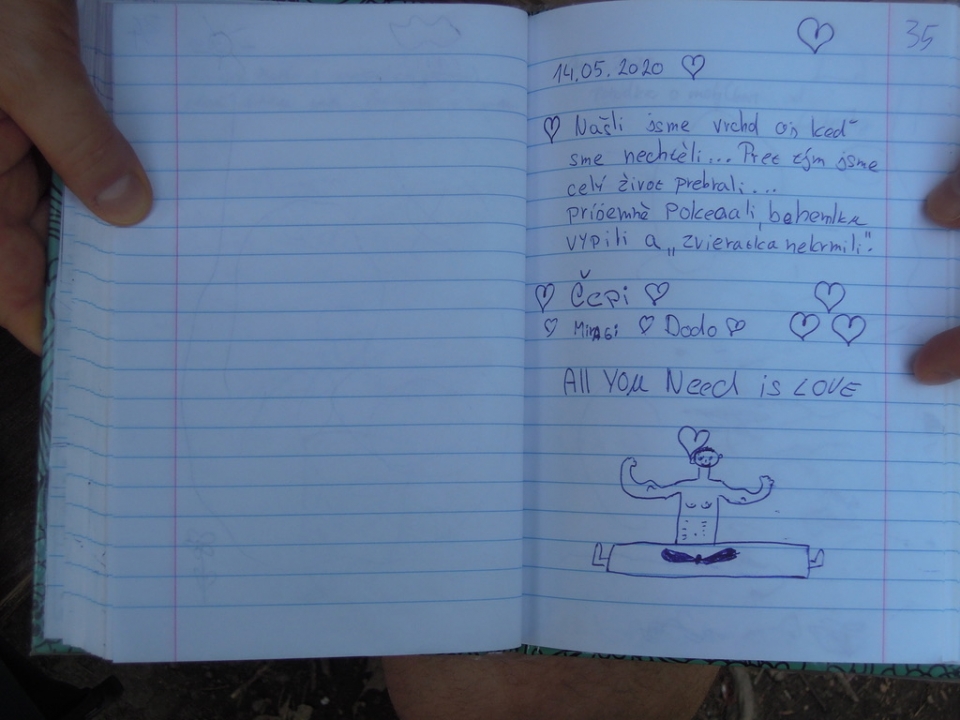 35
14.05.2020
Našli jsme vrchd keď
sme nechtěli... Pret tým jsme
celý život prebrali...
príjemně pokecali, bahenku
vypili a „zvieratka nekrmili".
Čepi
Dodo
All You Need is LOVE